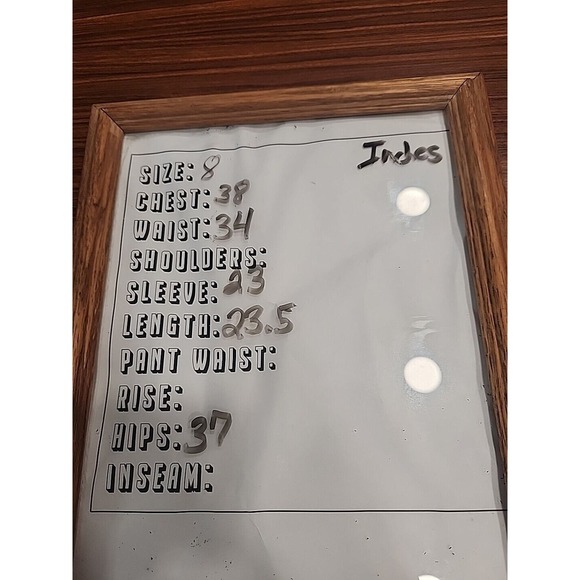 Inches
SIZE: 8
CHEST: 38
WAIST: 34
SHOULDERS:
SLEEVE: 23
LENGTH: 23.5
PANT WAIST:
RISE:
HIPS: 37
INSEAM: